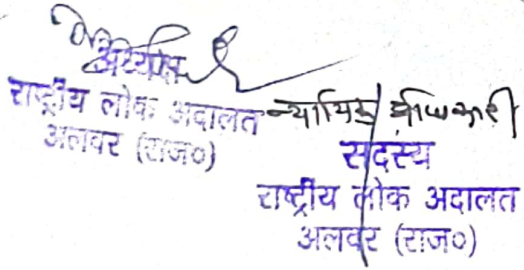 अध्यक्ष
राष्ट्रीय लोक अदालत
अलवर (राज०)
न्यायिक
सदस्य
राष्ट्रीय लोक अदालत
अलवर (राज०)